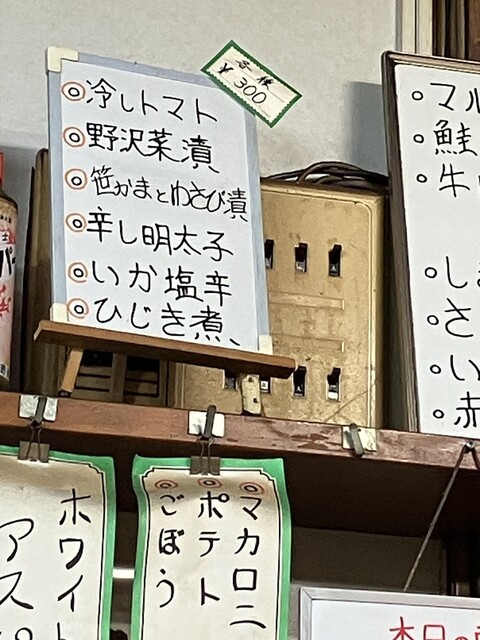 各種
¥300
◎冷しトマト
◎野沢菜漬
◎笹かまとわさび漬
◎辛し明太子
◎いか塩辛
◎ひじき煮、
○マル
○鮭
○牛
○しま
○さ
○い
○赤
◎マカロニ
◎ポテト
◎ごぼう
ホワイト
アスパ
本日の